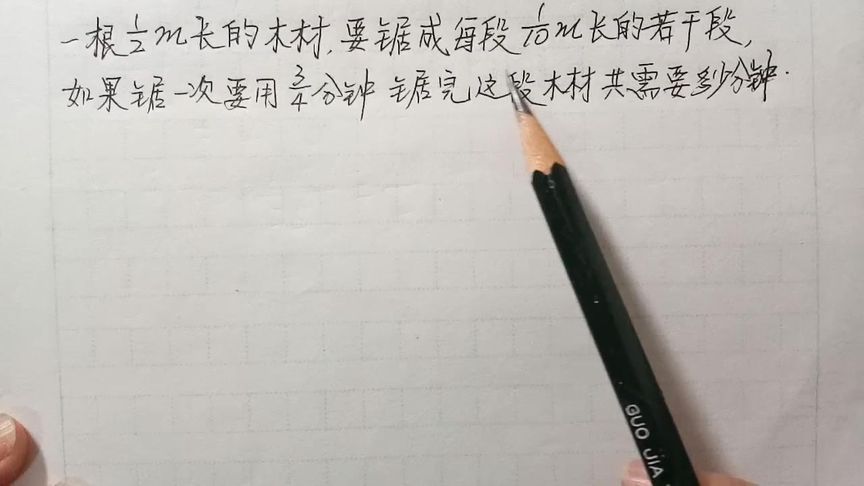 一根1/2m长的木材,要锯成每段1/10m长的若干段,
如果锯一次要用3/4分钟 锯完这段木材共需要多少分钟.
GUO JIA